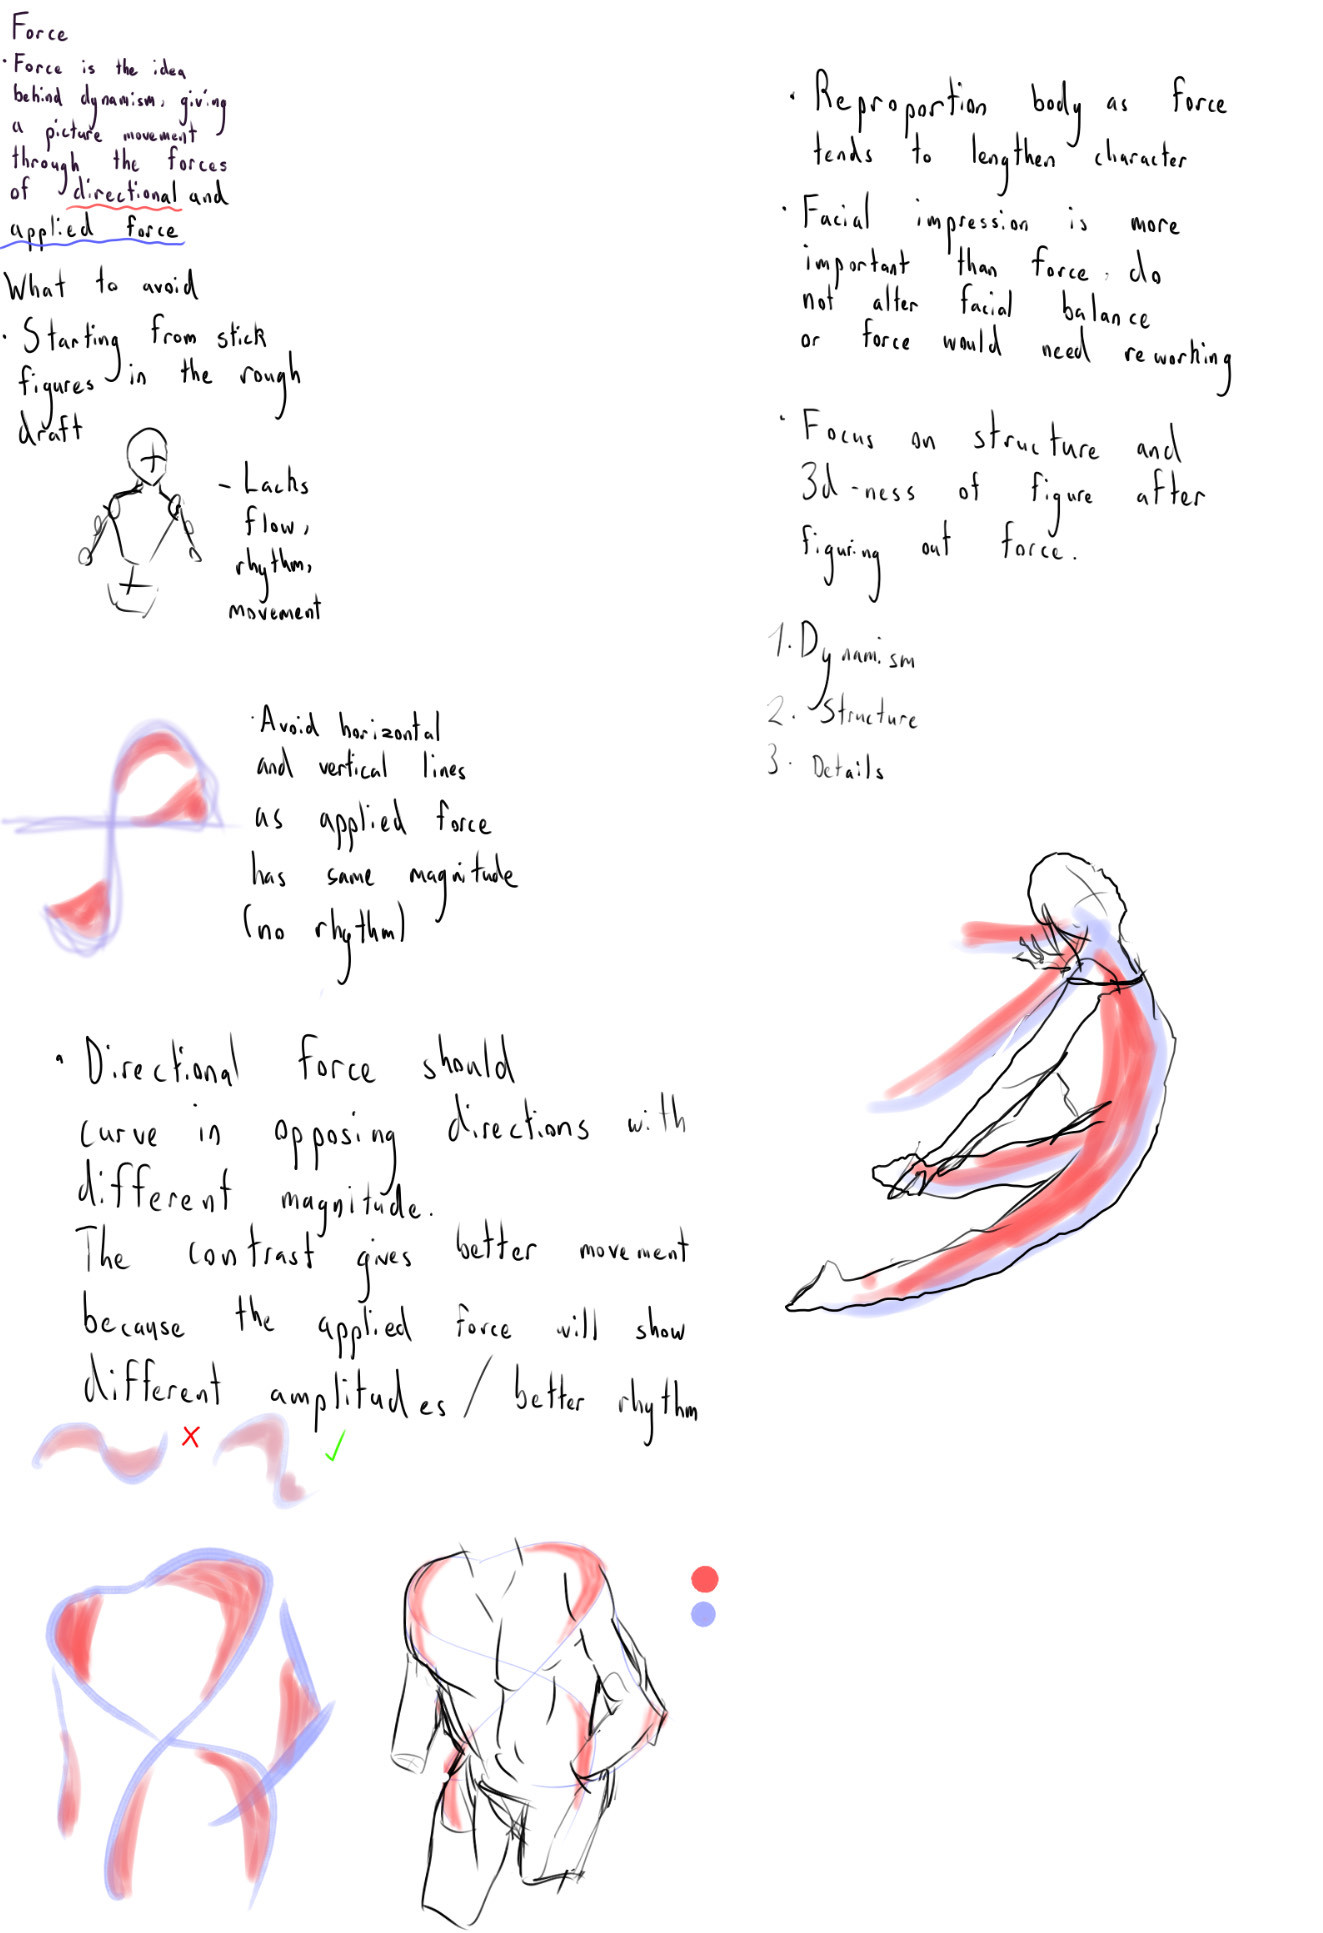 Force
· Force is the idea
behind dynamism, giving
a picture movement
through the forces
of directional and
applied force
What to avoid
· Starting from stick
figures in the rough
draft
- Lacks
flow,
rhythm,
movement
· Avoid horizontal
and vertical lines
as applied force
has same magnitude
(no rhythm)
· Directional force should
curve in opposing directions with
different magnitude.
The contrast gives better movement
because the applied force will show
different amplitudes / better rhythm
· Reproportion body as force
tends to lengthen character
· Facial impression is more
important than force, do
not alter facial balance
or force would need reworking
· Focus on structure and
3d-ness of figure after
figuring out force.
1. Dynamism
2. Structure
3. Details